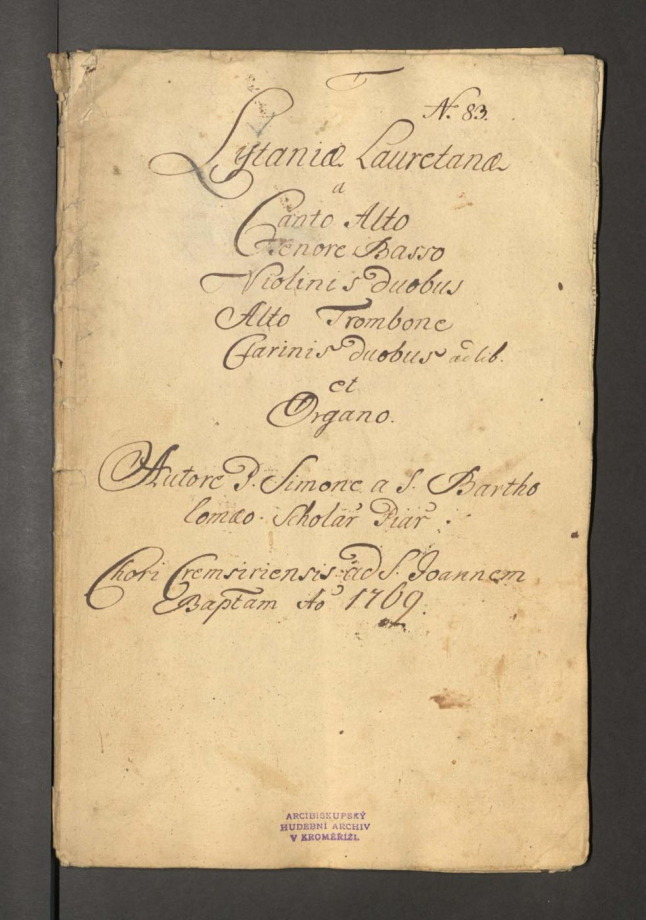 N. 83.
Lytaniæ Lauretanæ
a
Canto Alto
Tenore Basso
Violinis duobus
Alto Trombone
Clarinis duobus ad lib.
et
Organo.
Autore P. Simone a S. Bartho
lomæo Scholar Piar:
Chori Cremsiriensis ad S. Joannem
Baptam Ao 1769.
ARCIBISKUPSKÝ
HUDEBNÍ ARCHIV
V KROMĚŘÍŽI.